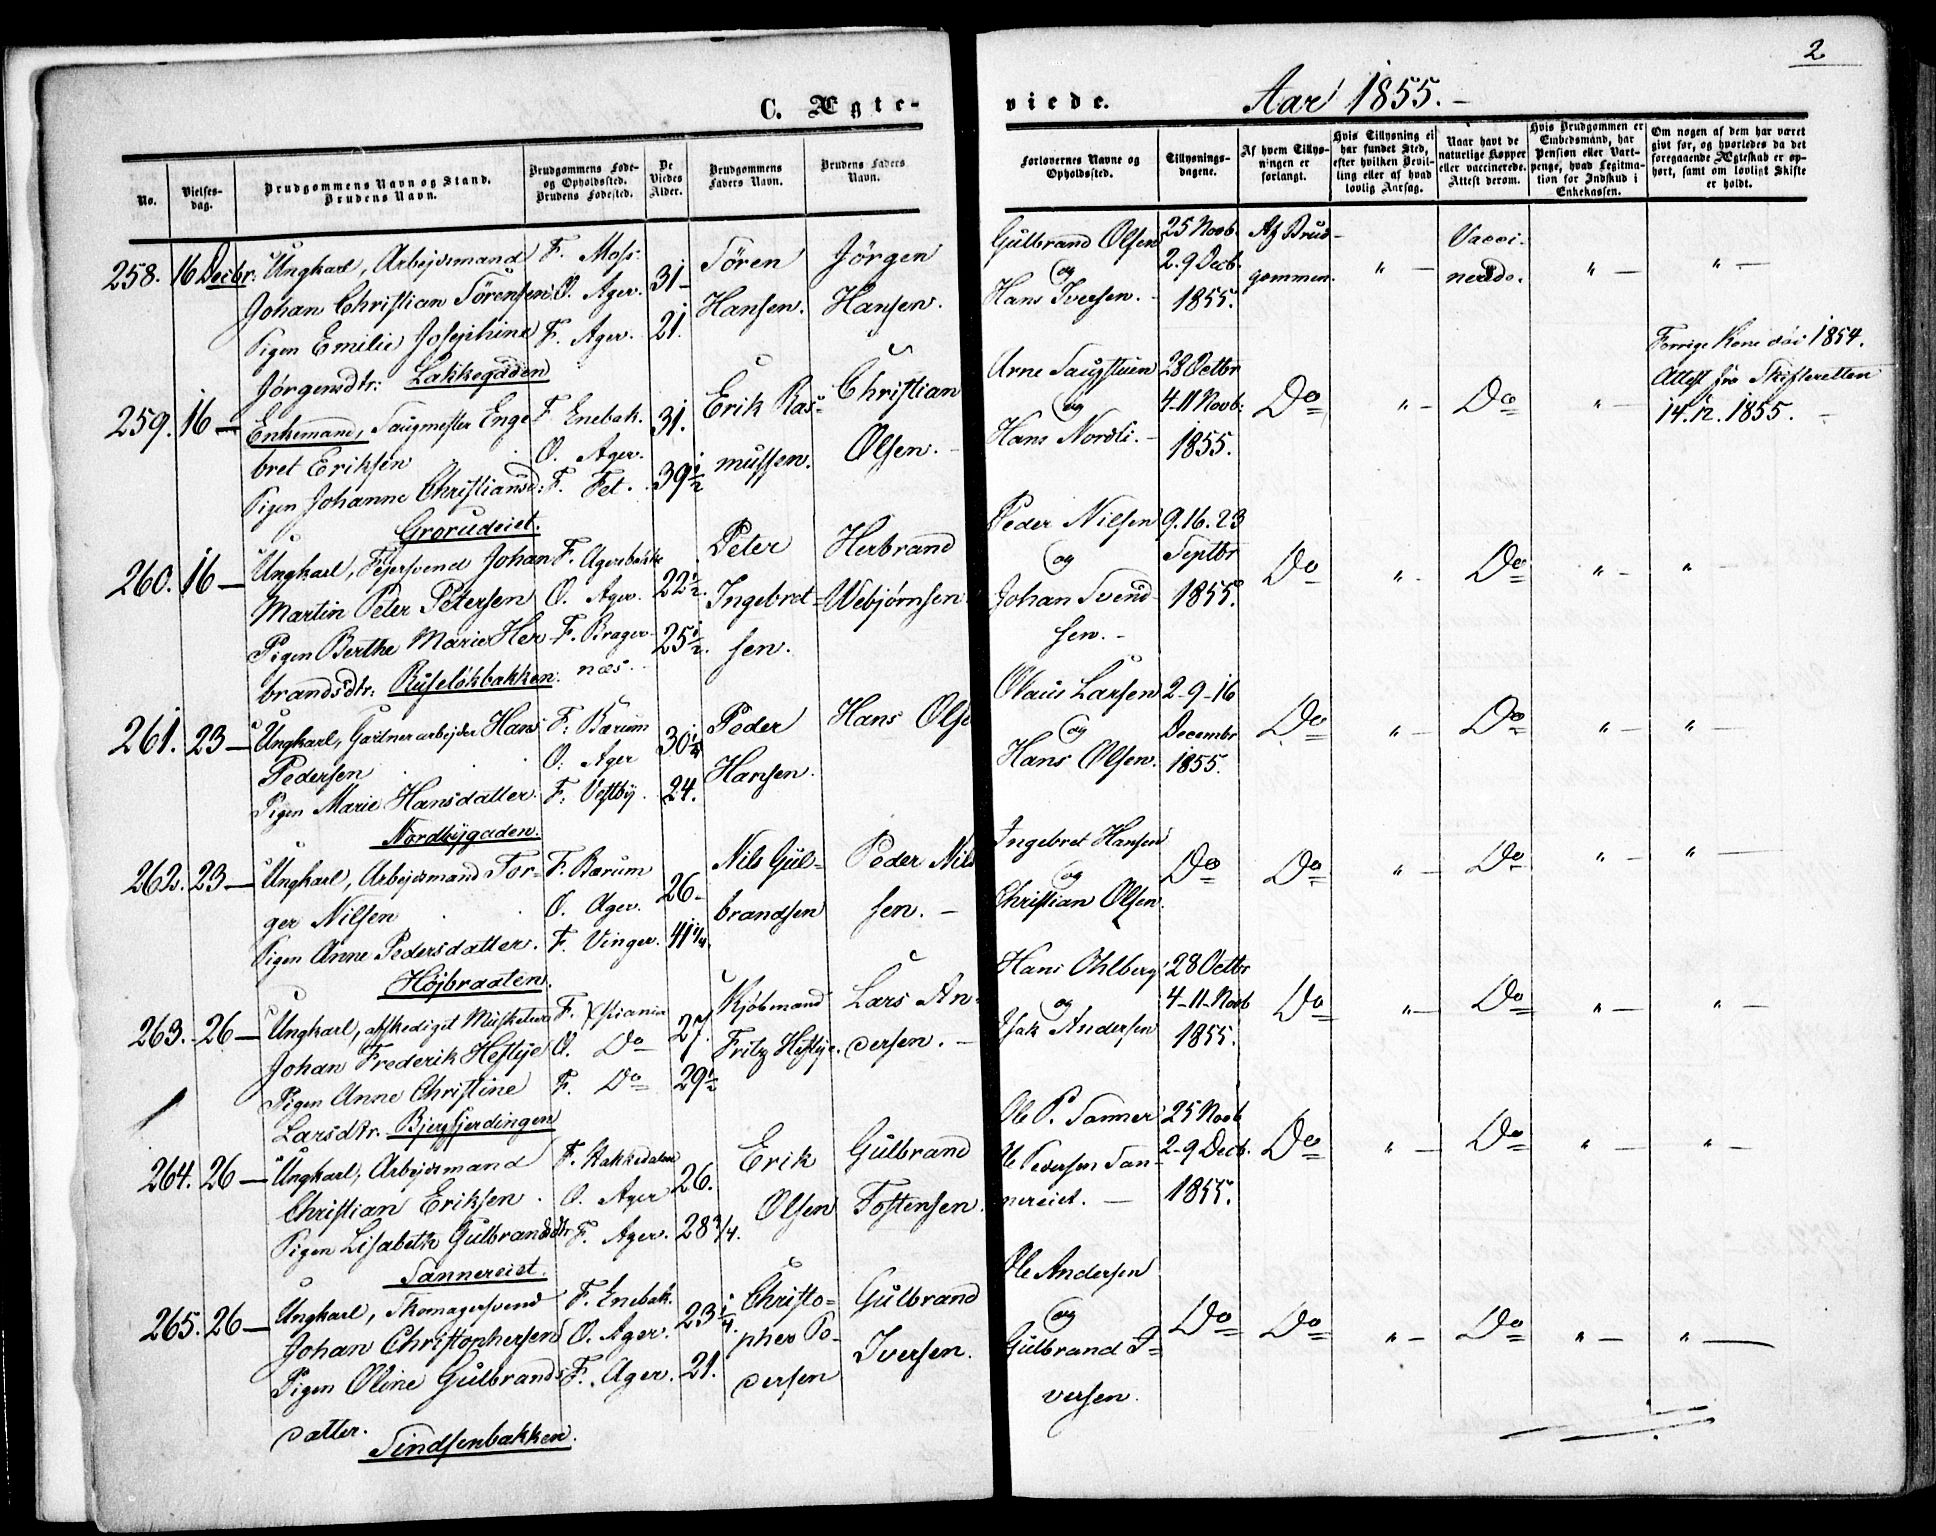 2
C. Ægte-
viede.
Aar 1855.-
No.
Vielses-
dag.
Brudgommens Navn og Stand.
Brudens Navn.
Brudgommens Føde-
og Opholdssted.
Brudens Fødested.
De
Viedes
Alder.
Brudgommens
Faders Navn.
Brudens Faders
Navn.
Forlovernes Navne og
Opholdssted.
Tillysnings-
dagene.
Af hvem Tillys-
ningen er
forlangt.
Hvis Tillysning ei
har fundet Sted,
efter hvilken Bevil-
ling eller af hvad
lovlig Aarsag.
Naar havt de
naturlige Kopper
eller vaccinerede.
Attest derom.
Hvis Brudgommen er
Embedsmand, har
Pension eller Vart-
penge, hvad Legitima-
tion for Indskud i
Enkekassen.
Om nogen af dem har været
gift før, og hvorledes da det
foregaaende Ægteskab er op-
hørt, samt om lovligt Skifte
er holdt.
258. 16 Decbr: Ungkarl, Arbejdsmand
Johan Christian Sörensen
Pigen Emilie Josephine
Jørgensdtr: Lakkegaden
F. Moss.
O. Ager.
F. Ager.
31
21.
Sören
Hansen.
Jörgen
Hansen.
Gulbrand Olsen
og
Hans Iversen.
25 Novb.
2. 9 Decb.
1855.
Af Brud-
gommen.
" -
Vacci-
nerede.
" -
" -
259. 16 - Enkemand, Saugmester Enge
bret Eriksen
Pigen Johanne Christiansd:
Grorudeiet.
F. Enebak.
O. Ager.
F. Fet.
31.
39 1/2
Erik Ras-
mussen.
Christian
Olsen.
Arne Saugstuen
og
Hans Nordli.
28 Octbr
4-11 Novb:
1855.
Do
" -
Do
" -
Forrige Kone döi 1854.
Attest fra Skifteretten
14.12.1855.
260. 16 - Ungkarl, Fejersvend Johan
Martin Peter Petersen
Pigen Berthe Marie Her-
brandsdtr: Ruseløkbakken.
F. Agersbakke
O. Ager.
F. Brager-
næs.
22 1/2.
25 1/2.
Peter
Ingebret-
sen.
Herbrand
Webjørnsen
Peder Nilsen
og
Johan Svend
sen.
9. 16. 23
Septbr
1855.
Do
" -
Do
" -
" -
261. 23 - Ungkarl, Gartnerarbejder Hans
Pedersen
Pigen Marie Hansdatter.
Nordbygaden.
F. Bærum
O. Ager
F. Vestby
30 1/4
24.
Peder
Hansen.
Hans Olse
Olaus Larsen
og
Hans Olsen.
2-9-16
Decembr
1855.
Do
" -
Do
" -
" -
262. 23 - Ungkarl, Arbejdsmand Tor-
ger Nilsen
Pigen Anne Pedersdatter.
Höjbraaten.
F. Bærum
O. Ager.
F. Vinger.
26-
41 1/4.
Nils Gul-
brandsen
Peder Nils
sen. -
Ingebret Hansen
og
Christian Olsen.
Do
Do
" -
Do
" -
" -
263. 26 - Ungkarl, afskediget Musketeer
Johan Frederik Heftye
Pigen Anne Christine
Larsdtr. Bjergfjerdingen
F. Xstiania
O. Do
F. Do
27.
29 1/2
Kjöbmand
Fritz Heftye.
Lars An-
dersen. -
Hans Ohlberg
og
Isak Andersen
28 Octbr
4-11-Novb
1855.
Do
" -
Do
" -
" -
264. 26 - Ungkarl, Arbejdsmand
Christian Eriksen.
Pigen Lisabeth Gulbrandsdtr
Sannereiet.
F. Hakkedalen
O. Ager
F. Ager.
26.
28 3/4.
Erik
Olsen
Gulbrand
Tostensen.
Ole P. Sanner
Ole Pedersen San-
nereiet. -
25 Novb
2-9 Decb.
1855.
Do
" -
Do
" -
" -
265. 26 - Ungkarl, Skomagersvend
Johan Christophersen
Pigen Oline Gulbrands
datter.
Sindsenbakken.
F. Enebak.
O. Ager.
F. Ager.
23 1/4.
21.
Christo-
pher Pe-
dersen
Gulbrand
Iversen.
Ole Andersen
og
Gulbrand I-
versen.
Do
Do
" -
Do
" -
" -